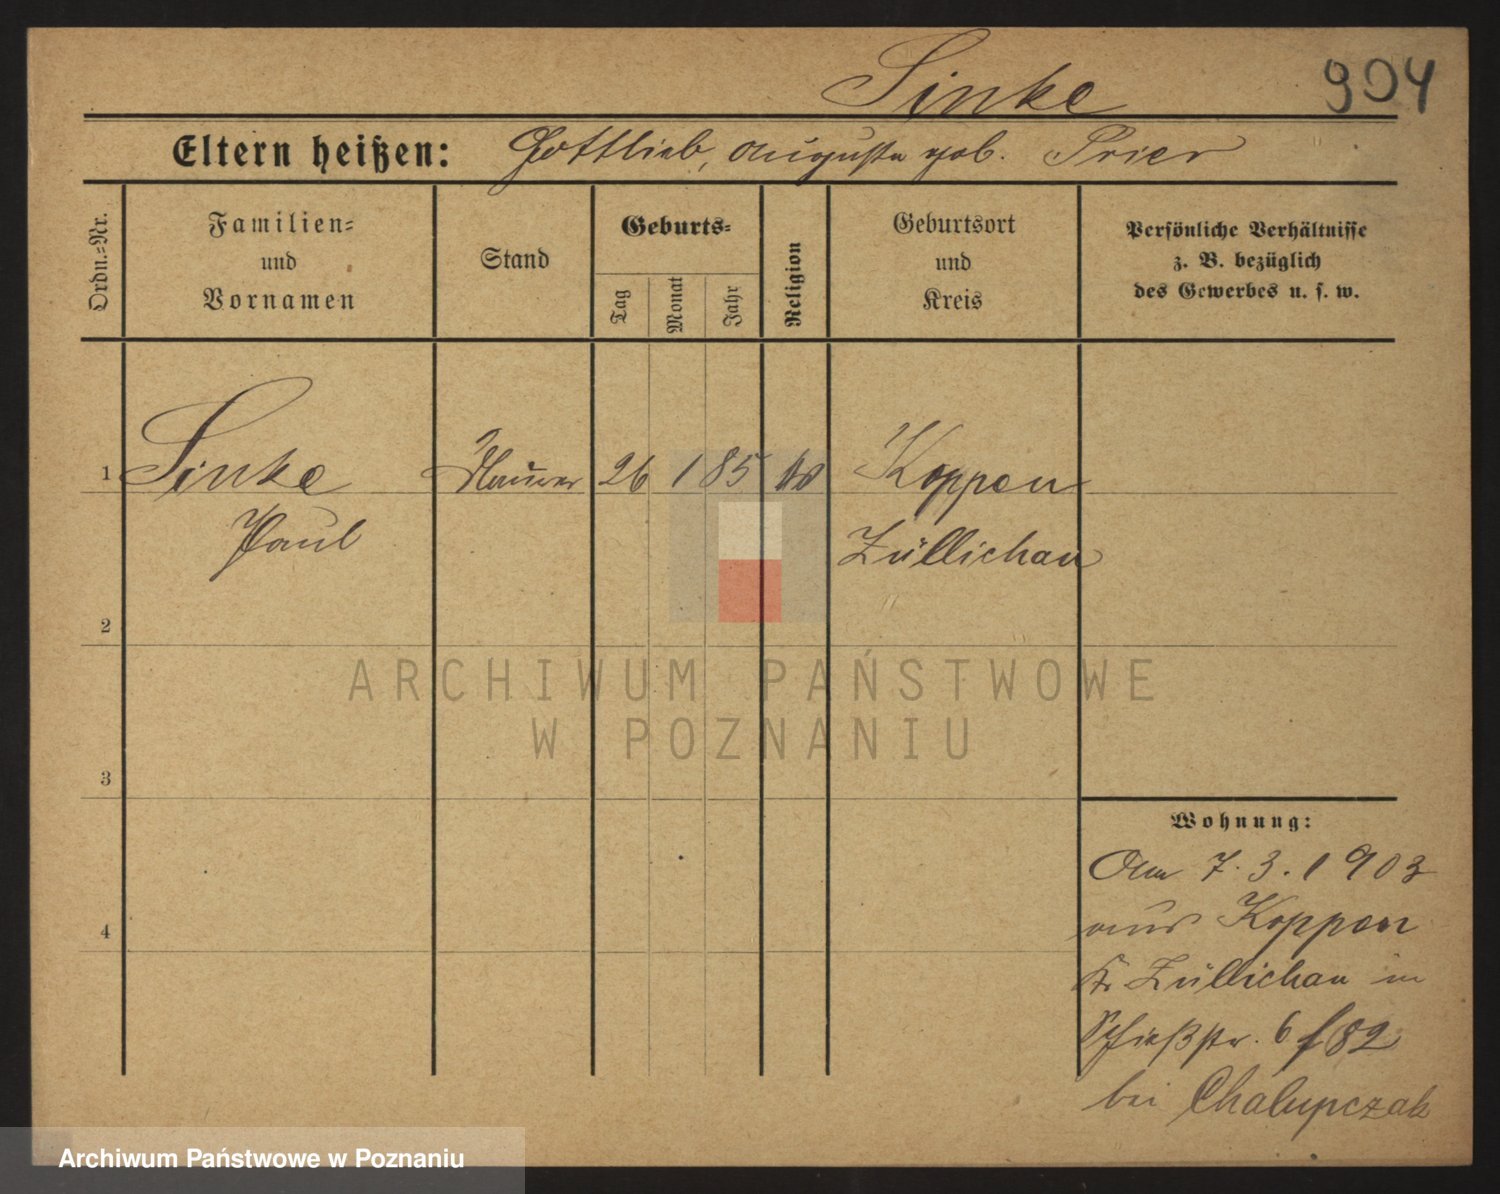 Sinke 904
Eltern heißen: Gottlieb, Auguste geb. Prier
Ordn.=Nr.
Familien=
und
Vornamen
Stand
Geburts=
Tag
Monat
Jahr
Religion
Geburtsort
und
Kreis
Persönliche Verhältnisse
z. B. bezüglich
des Gewerbes u. s. w.
1 Sinke Maurer 26 1 85 Koppen
Paul Züllichau
2
3
4
Wohnung:
Am 7.3.1903
aus Koppen
Kr Züllichau in
Schießstr. 6 f 82
bei Chalupczak
ARCHIWUM PAŃSTWOWE
W POZNANIU
Archiwum Państwowe w Poznaniu